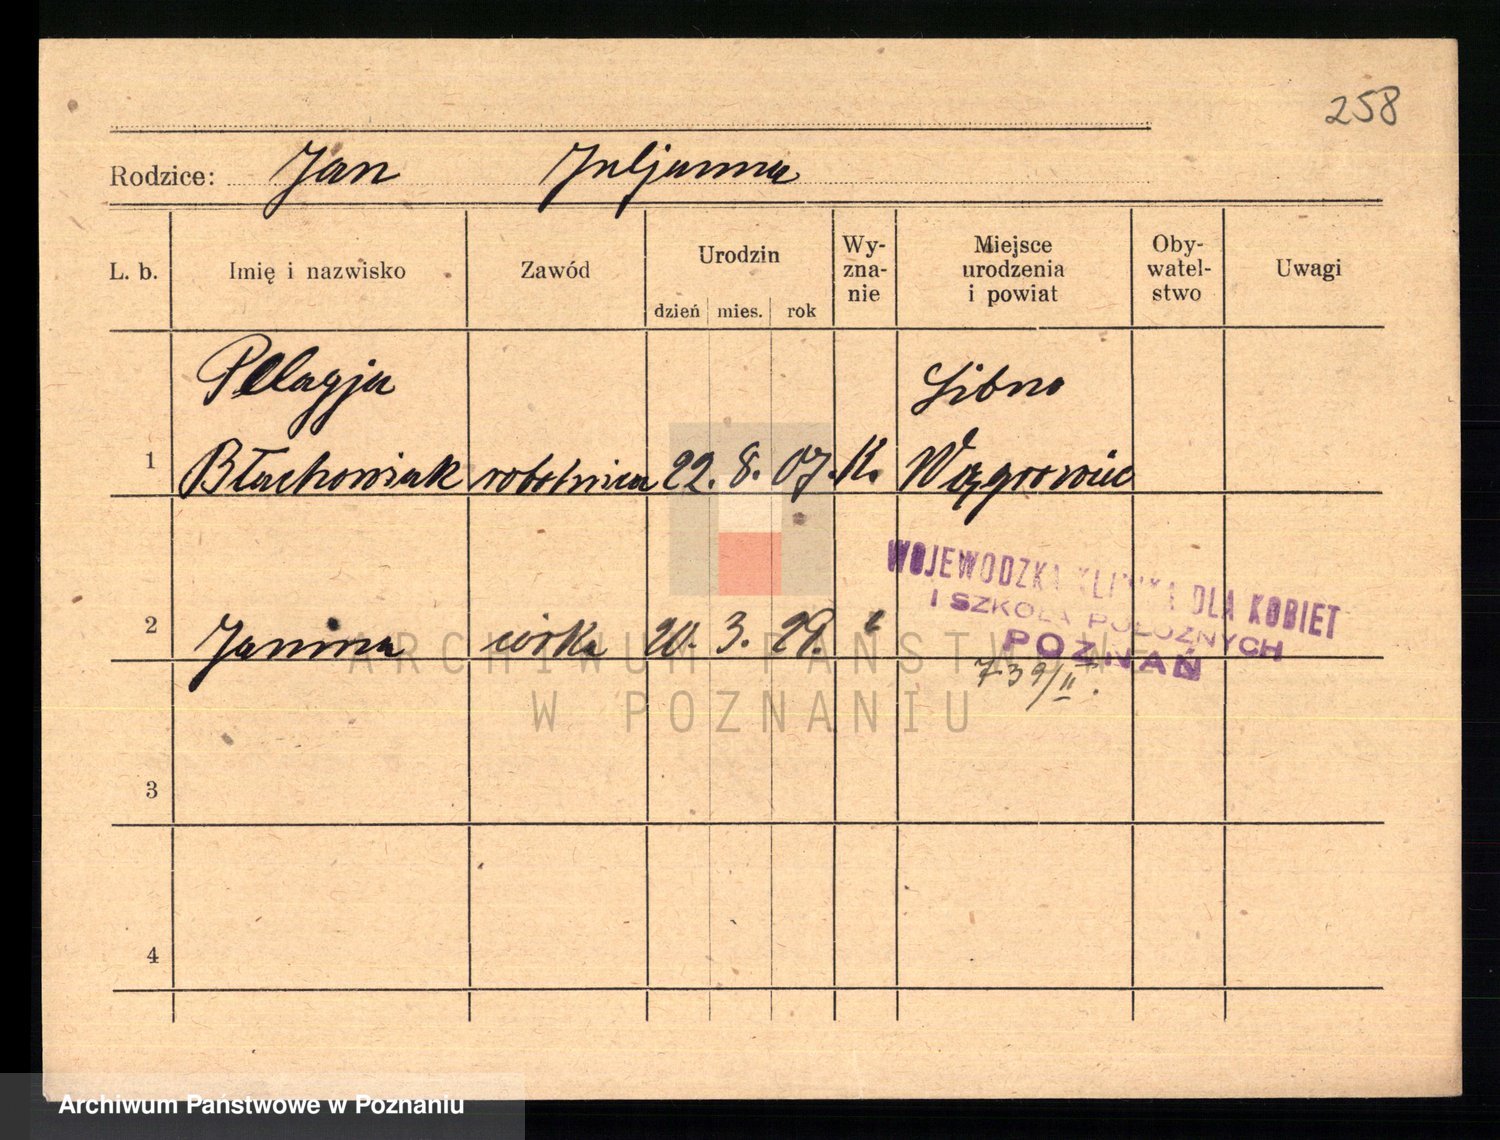 258
Rodzice: Jan Juljanna
L. b. Imię i nazwisko Zawód Urodzin dzień mies. rok Wy-zna-nie Miejsce urodzenia i powiat Oby-watel-stwo Uwagi
Pelagja Libno
1 Błachowiak robotnica 22. 8. 07. K. Wągrowiec
WOJEWODZKA KLINIKA DLA KOBIET
I SZKOŁA POŁOŻNYCH
POZNAŃ
2 Janina córka 20. 3. 29.
739/II.
ARCHIWUM PAŃSTWOWE
W POZNANIU
3
4
Archiwum Państwowe w Poznaniu